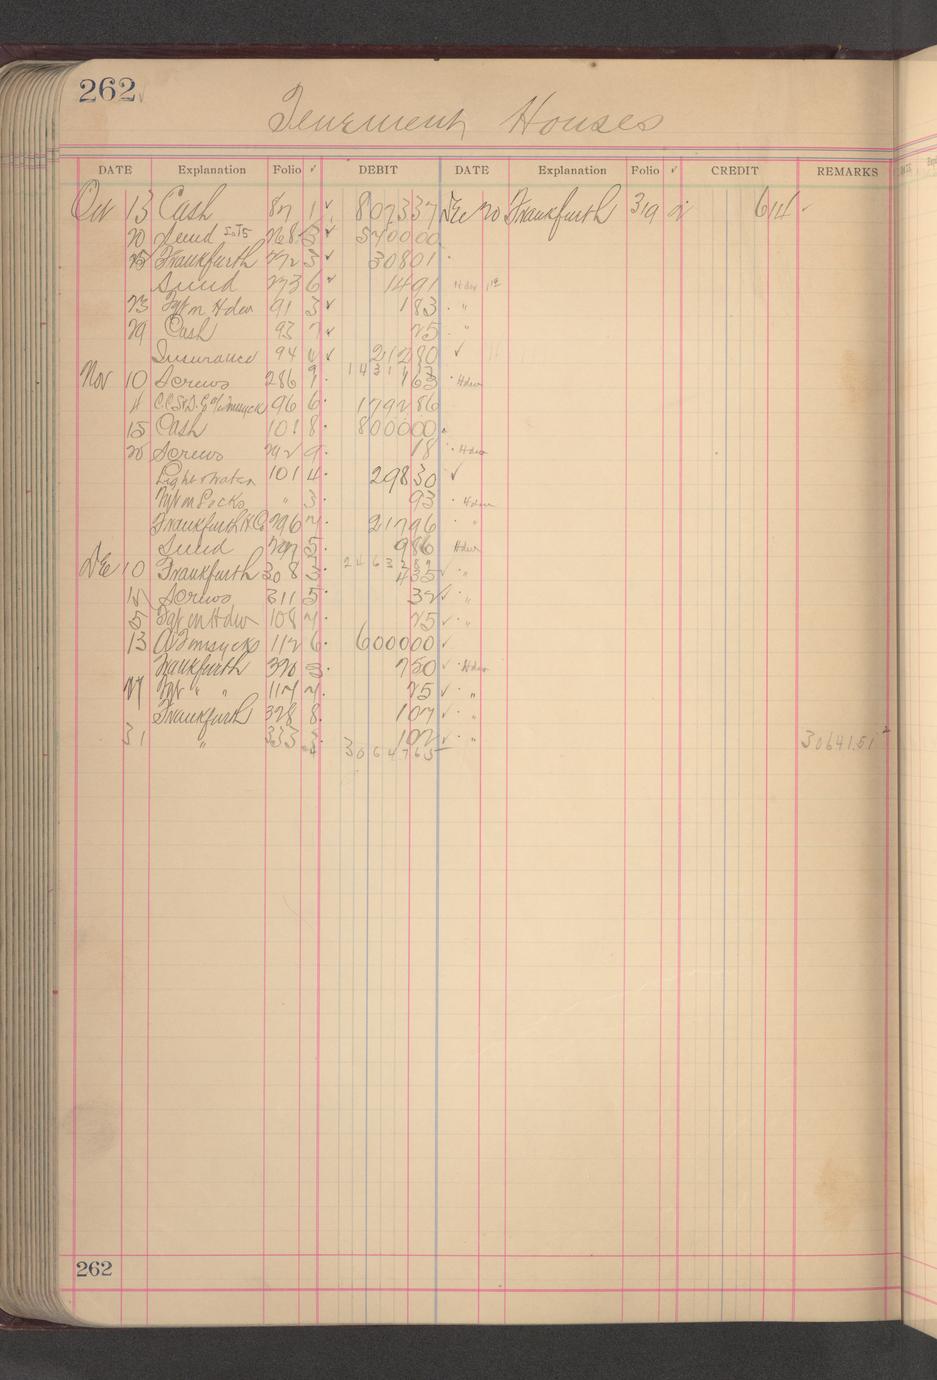 262
Tenement Houses
DATE Explanation Folio ✓ DEBIT DATE Explanation Folio ✓ CREDIT REMARKS
Oct 13 Cash 87 1 ✓ 8073 37 Dec 20 Frankfurth 319 2 6 14 ✓
20 Sund 268 3 ✓ 5400 00
25 Frankfurth 272 3 ✓ 308 01
Sund 273 6 ✓ 14 91 Hdw
23 Frt on Hdw 91 3 ✓ 1 83 "
29 Cash 93 7 ✓ 25 "
Insurance 94 4 ✓ 212 80 ✓
Nov 10 Screws 286 9 1 63 Hdw
11 96 6 1792 86
15 Cash 101 8 8000 00
20 Screws 292 9 18 Hdw
Light & Water 101 4 298 30 ✓
Frt on Locks " 3 93 Hdw
Frankfurth H Co 296 7 217 96 "
Sund 297 5 9 86 Hdw
24 63 2 89
Dec 10 Frankfurth 308 3 4 35 ✓ "
15 Screws 311 5 32 ✓ "
5 Frt on Hdw 108 7 25 ✓ "
13 112 6 6000 00 ✓
Frankfurth 320 3 7 50 ✓ Hdw
27 Frt " " 117 7 25 ✓ "
Frankfurth 328 8 1 07 ✓ "
31 " 333 3 1 02 ✓ " 30641.51
30 6 4 7 65
262